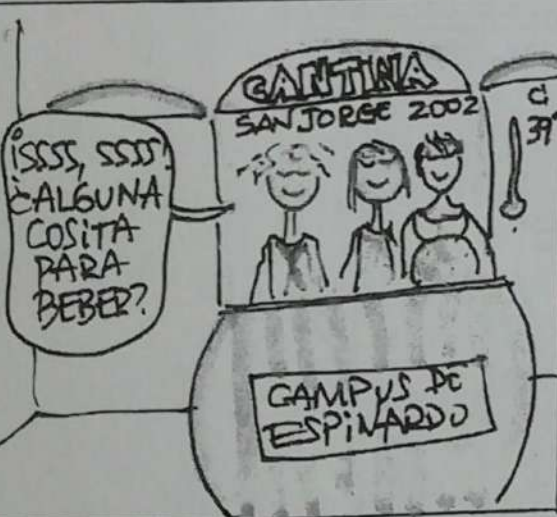 ¡SSSS, SSSS!
¿ALGUNA
COSITA
PARA
BEBER?
CANTINA
SAN JORGE 2002
C
39°
CAMPUS DE
ESPINARDO